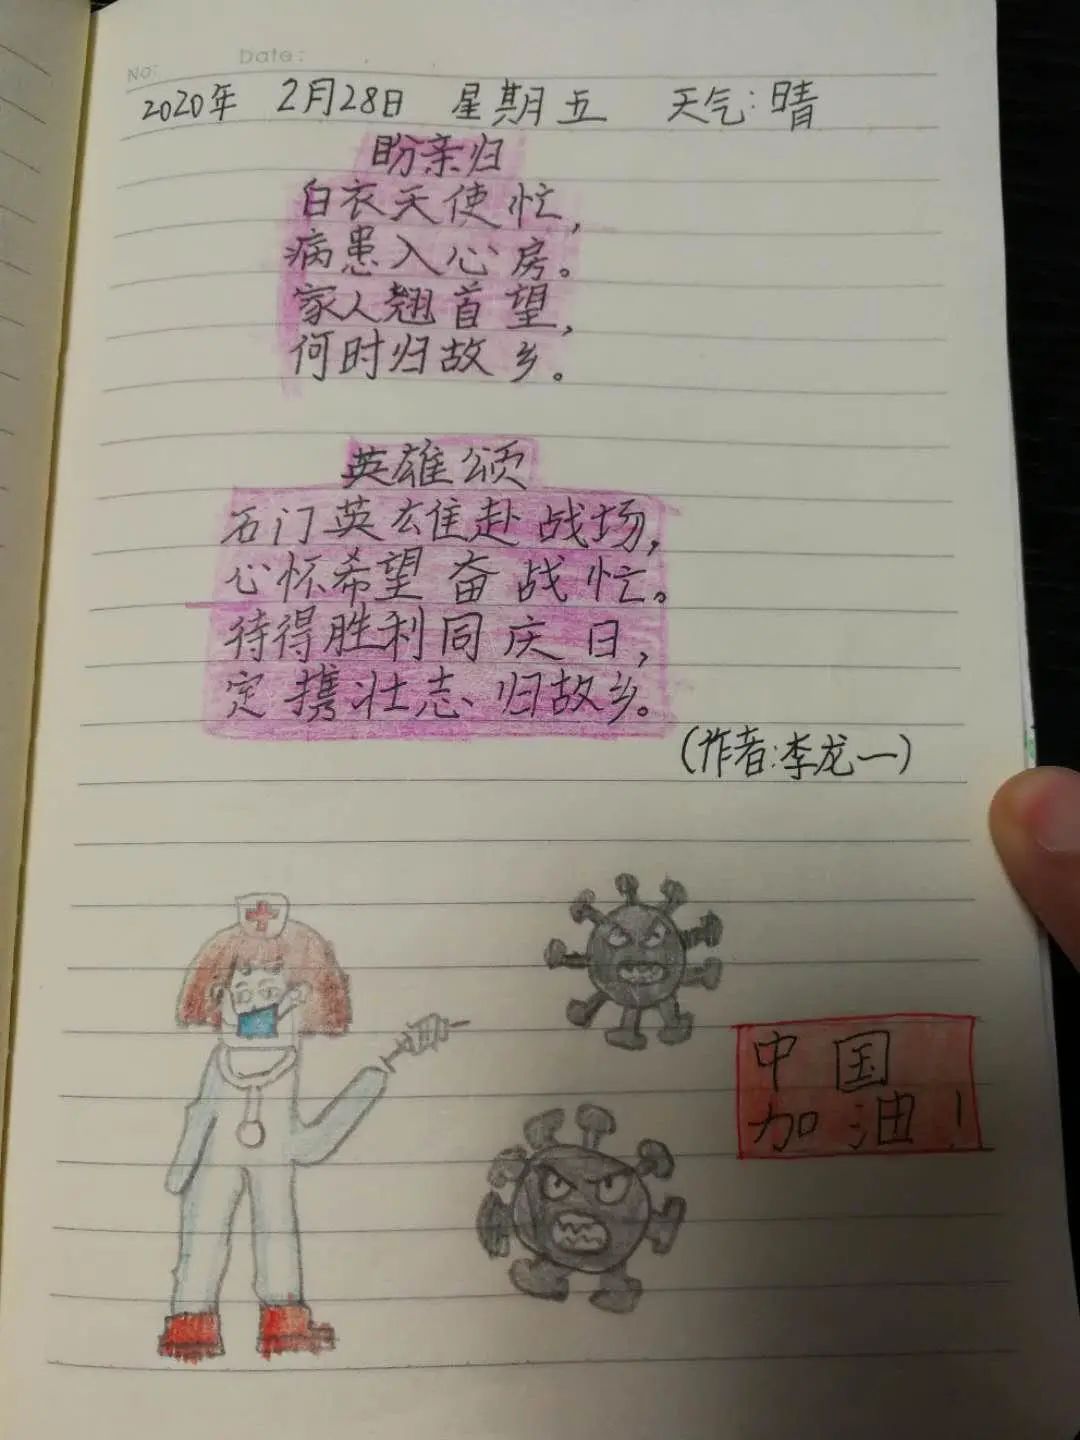 No:
Date:
2020年 2月28日 星期五 天气:晴
盼亲归
白衣天使忙,
病患入心房。
家人翘首望,
何时归故乡。
英雄颂
石门英雄赴战场,
心怀希望奋战忙。
待得胜利同庆日,
定携壮志归故乡。
(作者:李龙一)
中国
加油!